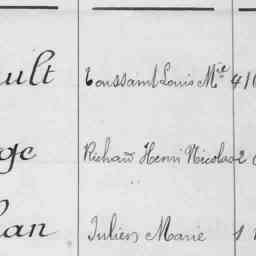 ault Toussaint Louis Mie 41
ge Richard Henri Nicolas 2
han Julien Marie 8